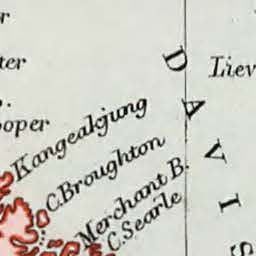 r
ter
ooper
Kangeakjung
C. Broughton
Merchant B.
C. Searle
DAVIS
Liev